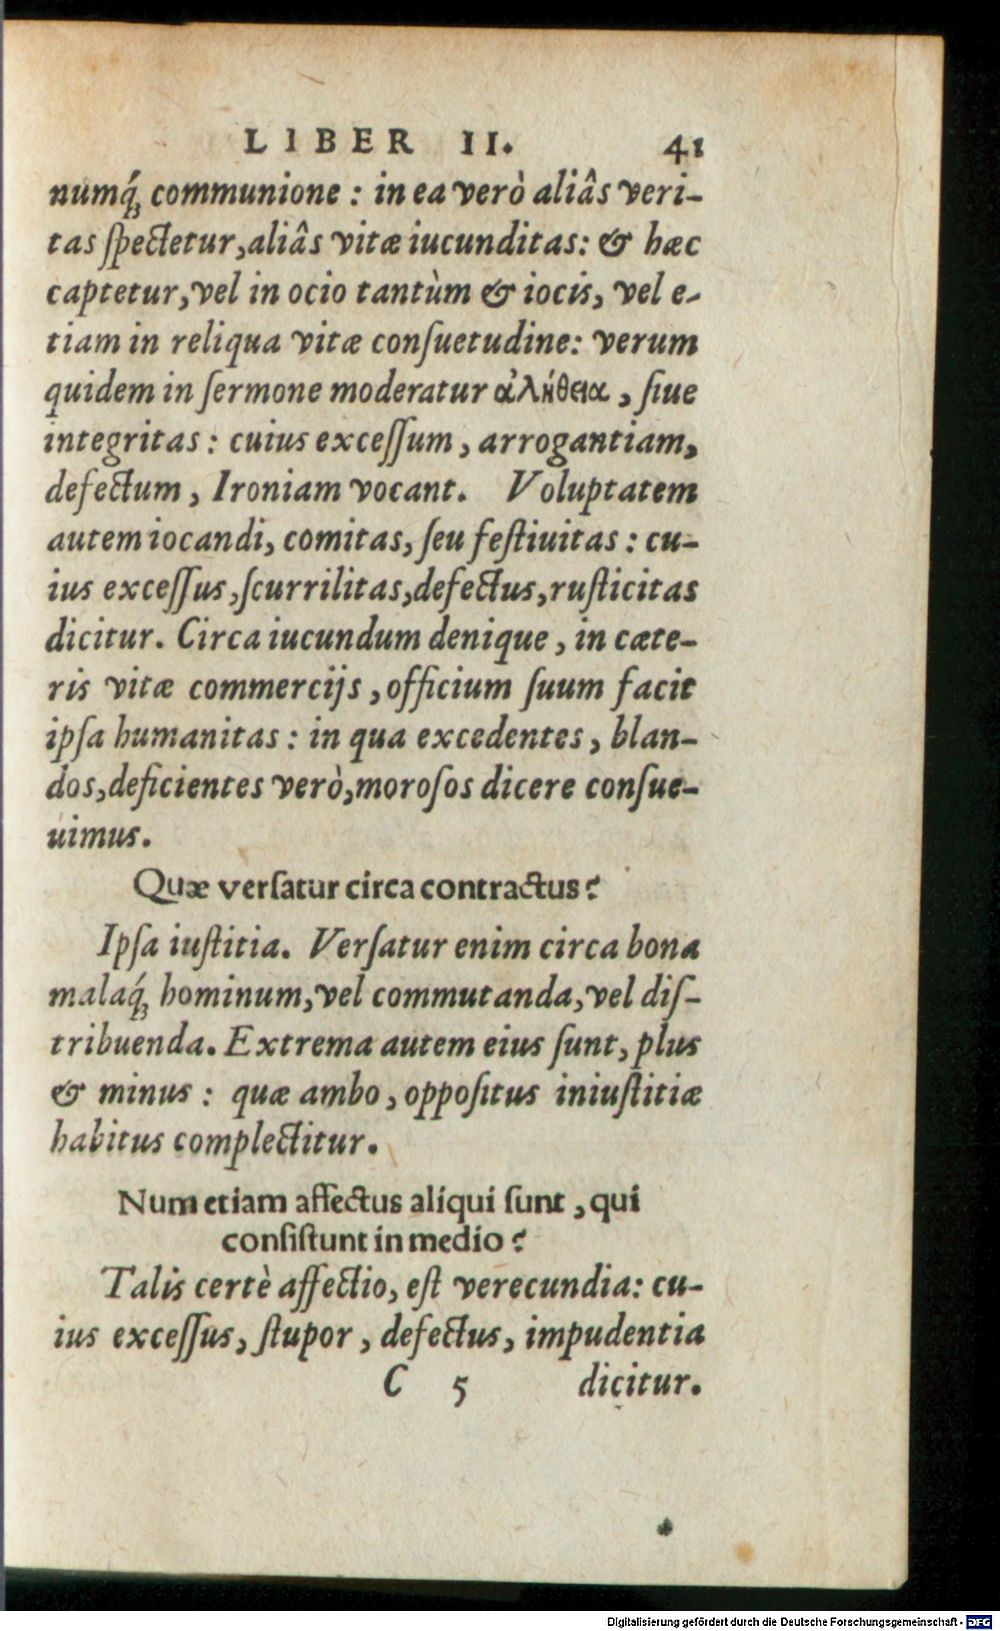 LIBER II. 41
numq́; communione : in ea verò aliâs veri-
tas ſpectetur, aliâs vitæ iucunditas: & hæc
captetur, vel in ocio tantùm & iocis, vel e-
tiam in reliqua vitæ conſuetudine: verum
quidem in ſermone moderatur ἀλήθεια, ſiue
integritas : cuius exceſſum, arrogantiam,
defectum, Ironiam vocant. Voluptatem
autem iocandi, comitas, ſeu feſtiuitas : cu-
ius exceſſus, ſcurrilitas, defectus, ruſticitas
dicitur. Circa iucundum denique, in cæte-
ris vitæ commercijs, officium ſuum facit
ipſa humanitas : in qua excedentes, blan-
dos, deficientes verò, moroſos dicere conſue-
uimus.
Quæ verſatur circa contractus?
Ipſa iuſtitia. Verſatur enim circa bona
malaq́; hominum, vel commutanda, vel diſ-
tribuenda. Extrema autem eius ſunt, plus
& minus : quæ ambo, oppoſitus iniuſtitiæ
habitus complectitur.
Num etiam affectus aliqui ſunt, qui
conſiſtunt in medio?
Talis certè affectio, eſt verecundia: cu-
ius exceſſus, ſtupor, defectus, impudentia
C 5 dicitur.
Digitalisierung gefördert durch die Deutsche Forschungsgemeinschaft - DFG